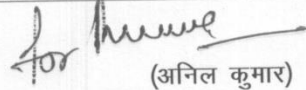 for
(अनिल कुमार)